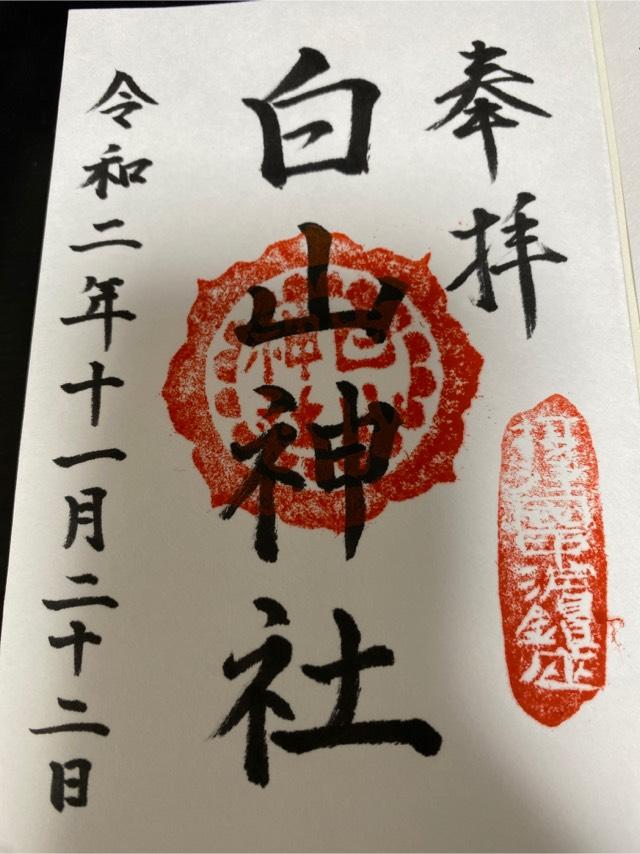 奉拝
白山神社
令和二年十一月二十二日